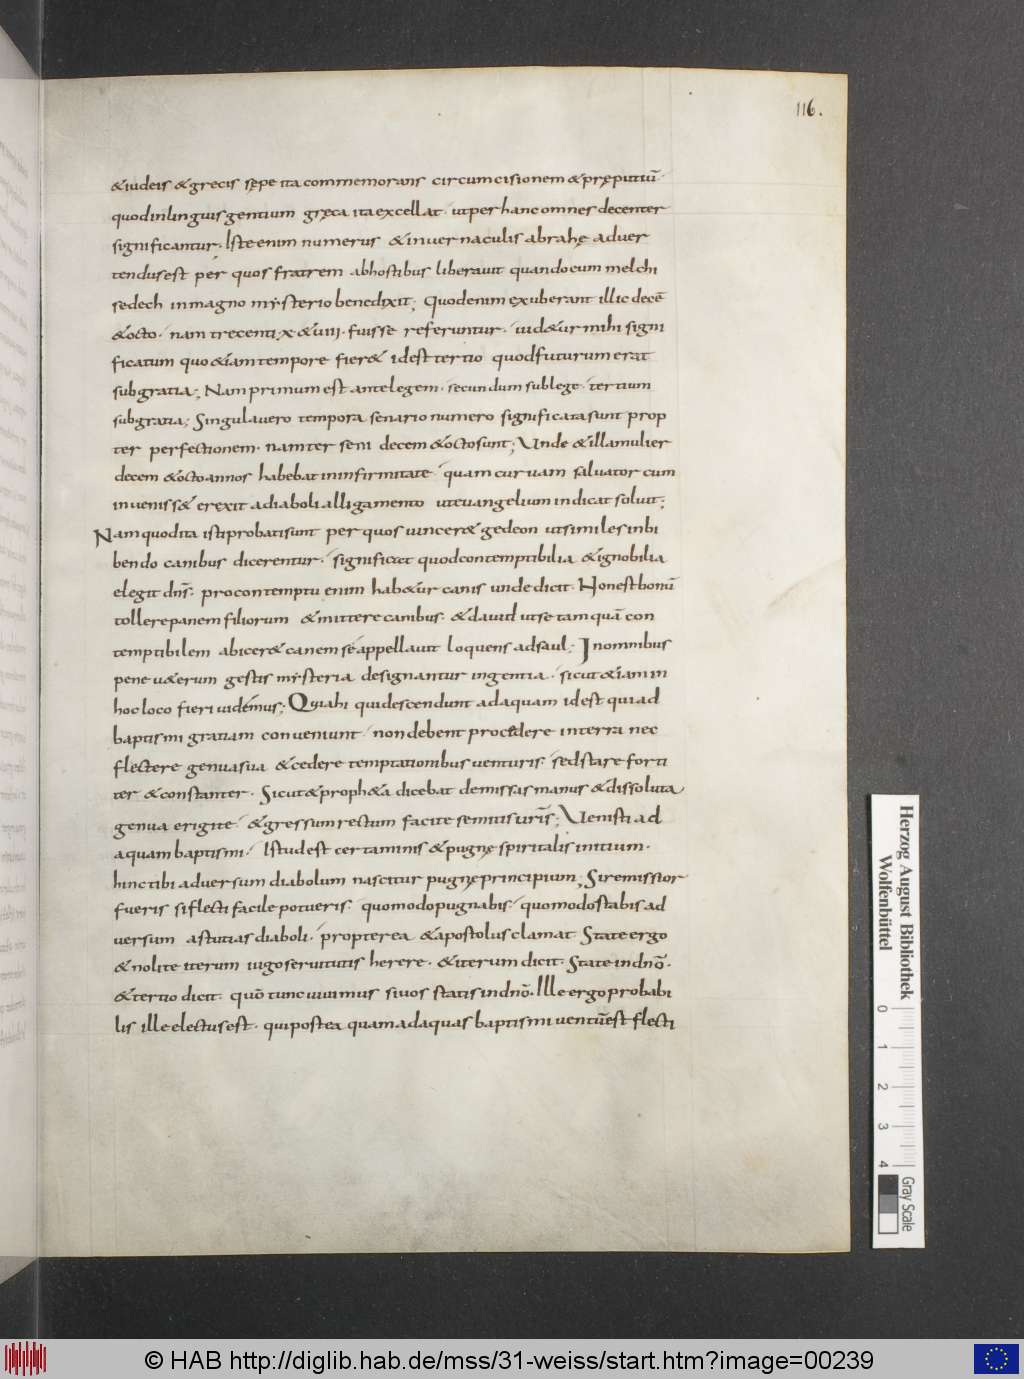 116.
&iudeis &grecis sępe ita commemorans circumcisionem & pręputiū·
quod inlinguis gentium gręca ita excellat· ut per hanc omnes decenter
significantur· Iste enim numerus & in uernaculis abrahę aduer
tendus est per quos fratrem ab hostibus liberauit quando eum melchi
sedech in magno mysterio benedixit; Quod enim exuberant illic decē
&octo· nam trecenti x & uiii· fuisse referuntur· uid&ur mihi signi
ficatum quo &iam tempore fier& id est tertio quod futurum erat
sub gratia; Nam primum est ante legem· secundum sub lege· tertium
sub gratia; Singula uero tempora senario numero significata sunt prop
ter perfectionem· nam ter seni decem &octo sunt; Unde &illa mulier
decem &octo annos habebat in infirmitate· quam curuam saluator cum
inueniss& erexit a diaboli alligamento ut euangelium indicat soluit;
Nam quod ita isti probati sunt per quos uincer& gedeon ut similes in bi
bendo canibus dicerentur· significat quod contemptibilia &ignobilia
elegit dn̄s· pro contemptu enim hab&ur canis unde dicit· Non est bonū
tollere panem filiorum & mittere canibus· & dauid ut se tam quā con
temptibilem abicer& canem se appellauit loquens ad saul; In omnibus
pene u&erum gestis mysteria designantur ingentia· sicut &iam in
hoc loco fieri uidemus; Quia hi qui descendunt ad aquam id est qui ad
baptismi gratiam conueniunt· non debent procedere in terra nec
flectere genua sua &cedere temptationibus uenturis· sed stare forti
ter &constanter· Sicut &proph&a dicebat demissas manus &dissoluta
genua erigite· &gressum rectum facite semitis uris̄; Uenisti ad
aquam baptismi· Istud est certaminis &pugnę spiritalis initium·
hinc tibi aduersum diabolum nascitur pugnę principium; Si remissior
fueris si flecti facile potueris· quomodo pugnabis· quomodo stabis ad
uersum astutias diaboli· propterea &apostolus clamat State ergo
& nolite iterum iugo seruitutis herere· &iterum dicit· State in dnō·
&tertio dicit· quō tunc uiuimus si uos statis in dnō· Ille ergo probabi
lis ille electus est· qui postea quam ad aquas baptismi uentū est flecti
Herzog August Bibliothek
Wolfenbüttel
0 1 2 3 4
Gray Scale
© HAB http://diglib.hab.de/mss/31-weiss/start.htm?image=00239